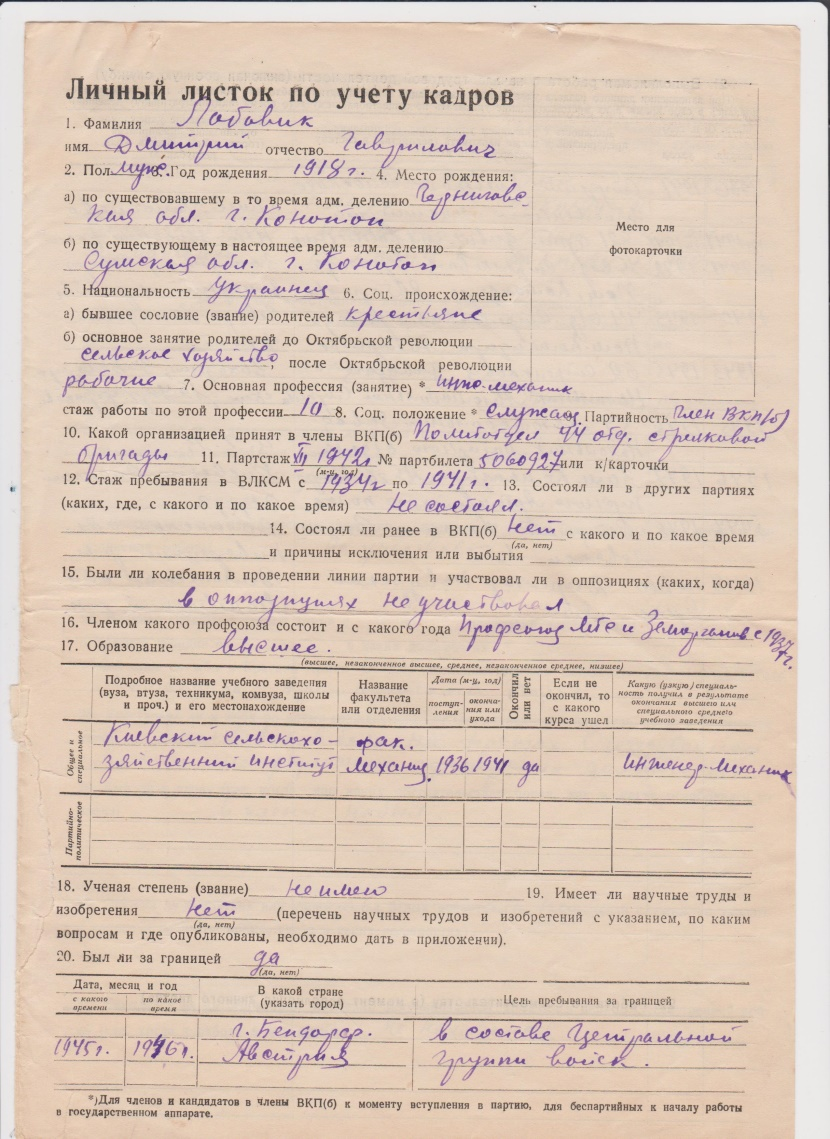 Личный листок по учету кадров
1. Фамилия Лабовик
имя Дмитрий отчество Гаврилович
2. Пол муж. 3. Год рождения 1918 г. 4. Место рождения:
а) по существовавшему в то время адм. делению Черниговс-
кая обл. г. Конотоп
б) по существующему в настоящее время адм. делению
Сумская обл. г. Конотоп
Место для
фотокарточки
5. Национальность Украинец 6. Соц. происхождение:
а) бывшее сословие (звание) родителей крестьяне
б) основное занятие родителей до Октябрьской революции
сельское хозяйство, после Октябрьской революции
рабочие 7. Основная профессия (занятие) * инж-механик
стаж работы по этой профессии 10 8. Соц. положение * Служащ 9. Партийность Член ВКП(б)
10. Какой организацией принят в члены ВКП(б) Политотдел 44 отд. стрелковой
бригады 11. Партстаж XII 1942г № партбилета 5060927 или к/карточки
(м-ц, год)
12. Стаж пребывания в ВЛКСМ с 1934г по 1941 г. 13. Состоял ли в других партиях
(каких, где, с какого и по какое время) Не состоял.
14. Состоял ли ранее в ВКП(б) Нет с какого и по какое время
(да, нет)
и причины исключения или выбытия
15. Были ли колебания в проведении линии партии и участвовал ли в оппозициях (каких, когда)
в оппозициях не участвовал
16. Членом какого профсоюза состоит и с какого года Профсоюз МТС и Земорганов с 1937 г.
17. Образование высшее.
(высшее, незаконченное высшее, среднее, незаконченное среднее, низшее)
Подробное название учебного заведения (вуза, втуза, техникума, комвуза, школы и проч.) и его местонахождение
Название факультета или отделения
Дата (м-ц, год)
поступ-ления
оконча-ния или ухода
Окончил или нет
Если не окончил, то с какого курса ушел
Какую (узкую) специаль-ность получил в результате окончания высшего или специального среднего учебного заведения
Общее и специальное
Киевский сельскохо- фак.
зяйственный институт механиз. 1936 1941 да инженер-механик
Партийно-политическое
18. Ученая степень (звание) не имею 19. Имеет ли научные труды и
изобретения Нет (перечень научных трудов и изобретений с указанием, по каким
(да, нет)
вопросам и где опубликованы, необходимо дать в приложении).
20. Был ли за границей да
(да, нет)
Дата, месяц и год
с какого времени
по какое время
В какой стране (указать город)
Цель пребывания за границей
г. Бендорф. в составе Центральной
1945г. 1946г. Австрия группы войск.
*) Для членов и кандидатов в члены ВКП(б) к моменту вступления в партию, для беспартийных к началу работы
в государственном аппарате.